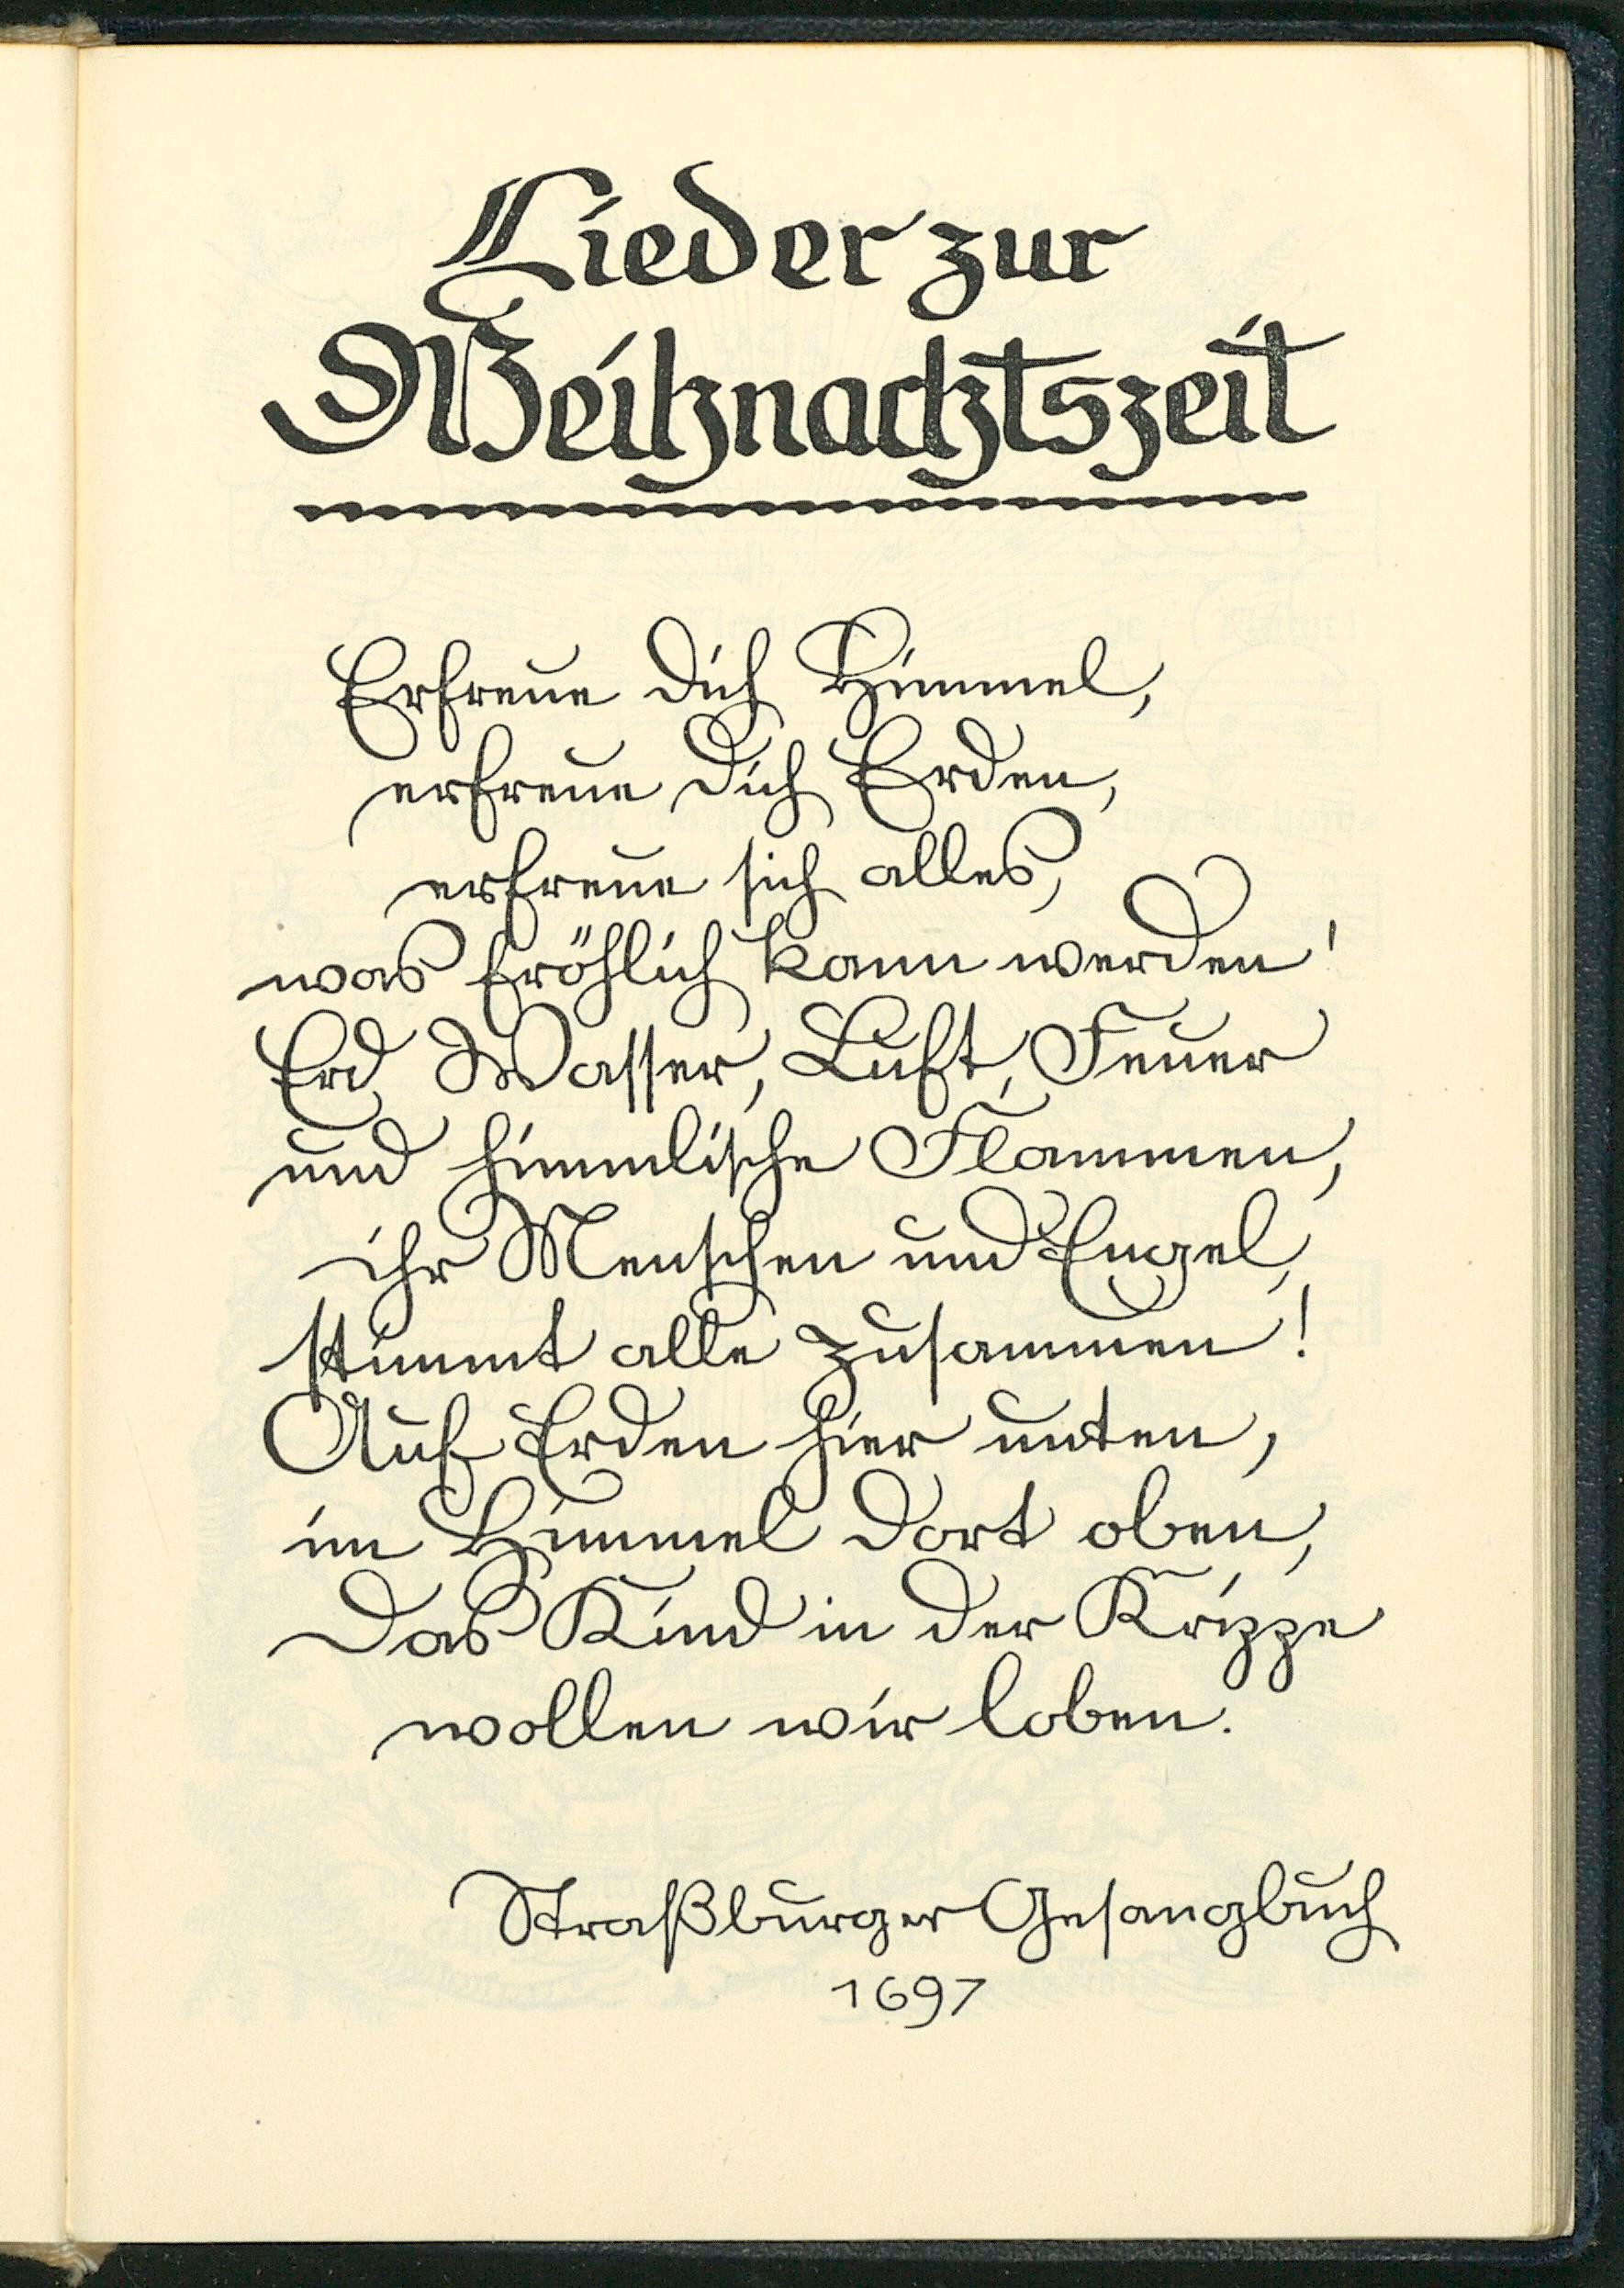 Lieder zur
Weihnachtszeit
Erfreue dich Himmel,
erfreue dich Erden,
erfreue sich alles,
was fröhlich kann werden!
Erd, Wasser, Luft, Feuer
und himmlische Flammen,
ihr Menschen und Engel,
stimmt alle zusammen!
Auf Erden hier unten,
im Himmel dort oben,
das Kind in der Krippe
wollen wir loben.
Straßburger Gesangbuch
1697